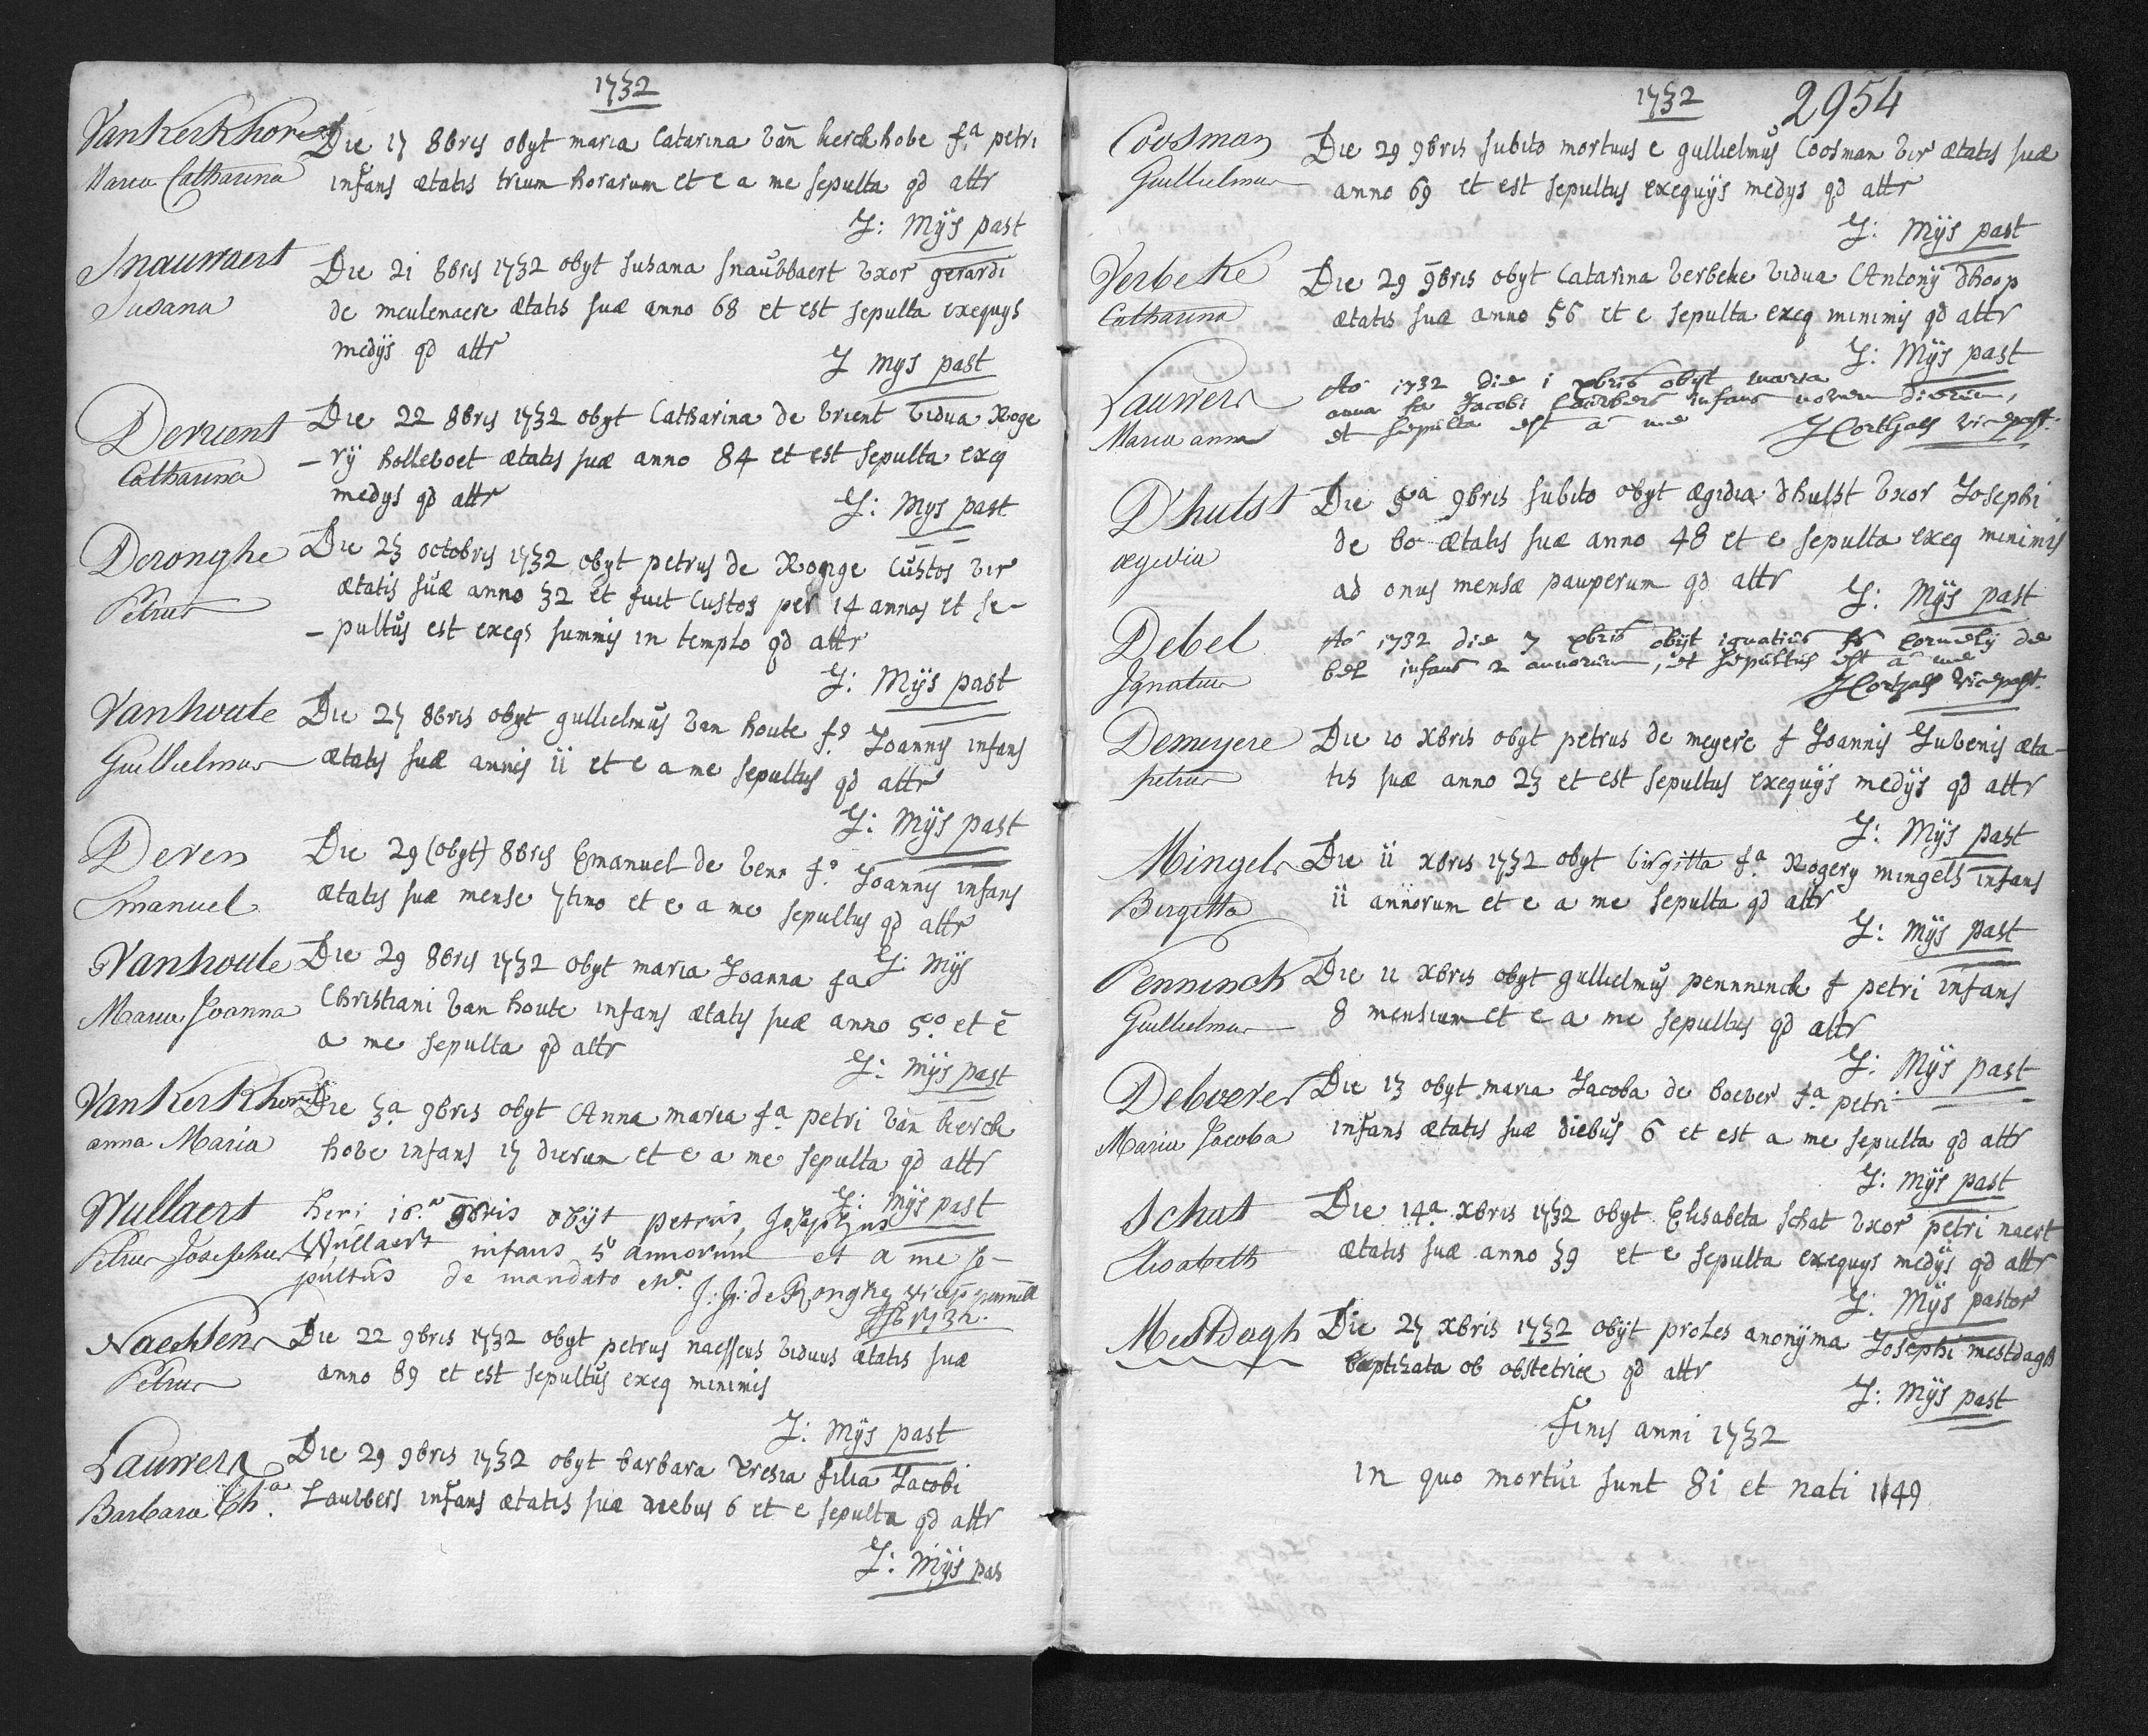 1732
Vankerkhove Die 17 8bris obyt maria Catarina Van kerckhobe fa petri
Maria Catharina infans ætatis trium horarum et e a me sepulta qd attr
J: Mÿs past
Snauwaert Die 21 8bris 1732 obyt susana snaubbaert Vxor gerardi
Susana de meulenaere ætatis suæ anno 68 et est sepulta exequys
medÿs qd attr
J mys past
Devrient Die 22 8bris 1732 obyt Catharina de Vrient Vidua Roge
Catharina – rÿ holleboet ætatis suæ anno 84 et est sepulta exeq
medys qd attr
J: Mys past
Deronghe Die 23 octobris 1732 obyt petrus de Rongé Custos Vir
Petrus ætatis suæ anno 32 et fuit Custos per 14 annos et se-
– pultus est exeqs summis in templo qd attr
J: Mÿs past
Vanhoute Die 27 8bris obyt gullielmus Van houte fs Joannis infans
Guillielmus ætatis suæ annis ii et e a me sepultus qd attr
J: Mÿs past
Deven Die 29 (obyt) 8bris Emanuel de Venn fs Joannis infans
Emanuel ætatis suæ mense 7timo et e a me sepultus qd attr
J: Mÿs
Vanhoute Die 29 8bris 1732 obyt maria Joanna fa
Maria Joanna Christiani Van houte infans ætatis suæ anno 5o et ē
a me sepulta qd attr
J: mÿs past
Vankerkhove Die 3a 9bris obyt Anna maria fa petri Van kerck
anna Maria hobe infans 17 dierum et e a me sepulta qd attr
J: mÿs past
Wullaert heri 16a 9bris obÿt petrus, Josephus
Petrus Josephus Wullaert infans 5 annorum et a me se-
pultus de mandato
J: de Ronghe
Naessens Die 22 9bris 1732 obyt petrus naessens Viduus ætatis suæ
Petrus anno 89 et est sepultus exeq minimis
J: Mÿs past
Lauwers Die 29 9bris 1732 obyt barbara Tresia filia Jacobi
Barbara Tha. Laubbers infans ætatis suæ diebus 6 et e sepulta qd attr
J: Mÿs pas
1732 2954
Coosman Die 29 9bris subito mortuus e gullielmus Coosman Vir ætatis suæ
Guillielmus anno 69 et est sepultus exequÿs medys qd attr
J: Mÿs past
Verbeke Die 29 9bris obyt Catarina Verbeke Vidua Antonÿ dhoop
Catharina ætatis suæ anno 56 et e sepulta exeq minimis qd attr
J: Mÿs past
Lauwers Ao 1732 die i xbris obÿt maria
Maria anna anna fa Jacobi Laurbers infans novem dierum,
et sepulta est a me
J Corthals vicepast.
D'hulst Die 5a 9bris subito obyt ægidia dhulst Vxor Josephi
ægidia de bo ætatis suæ anno 48 et e sepulta exeq minimis
ad onus mensæ pauperum qd attr
J: Mÿs past
Debel Ao 1732 die 7 xbris obÿt ignatius fs Cornelÿ de
Ignatius bel infans 2 annorum, et sepultus est a me
J Corthals vicepast.
Demeyere Die 10 Xbris obyt petrus de meyere f Joannis Jubenis æta-
petrus tis suæ anno 23 et est sepultus exequÿs medÿs qd attr
J: Mÿs past
Mingels Die ii xbris 1732 obyt birgitta fa Rogery mingels infans
Birgitta ii annorum et e a me sepulta qd attr
J: mÿs past
Penninck Die ii Xbris obyt gullielmus pennninck f petri infans
Guillielmus 8 mensium et e a me sepultus qd attr
J: Mÿs past
Deboever Die 13 obyt maria Jacoba de boever fa petri
Maria Jacoba infans ætatis suæ diebus 6 et est a me sepulta qd attr
J: Mÿs past
Schat Die 14a xbris 1732 obyt Elisabeta schat Vxor petri naert
Elisabeth ætatis suæ anno 39 et e sepulta exequys medys qd attr
J: Mÿs pastor
Mestdagh Die 27 xbris 1732 obÿt proles anonÿma Josephi mestdagh
baptizata ob obstetrice qd attr
J: Mÿs past
Finis anni 1732
in quo mortui sunt 81 et nati 149